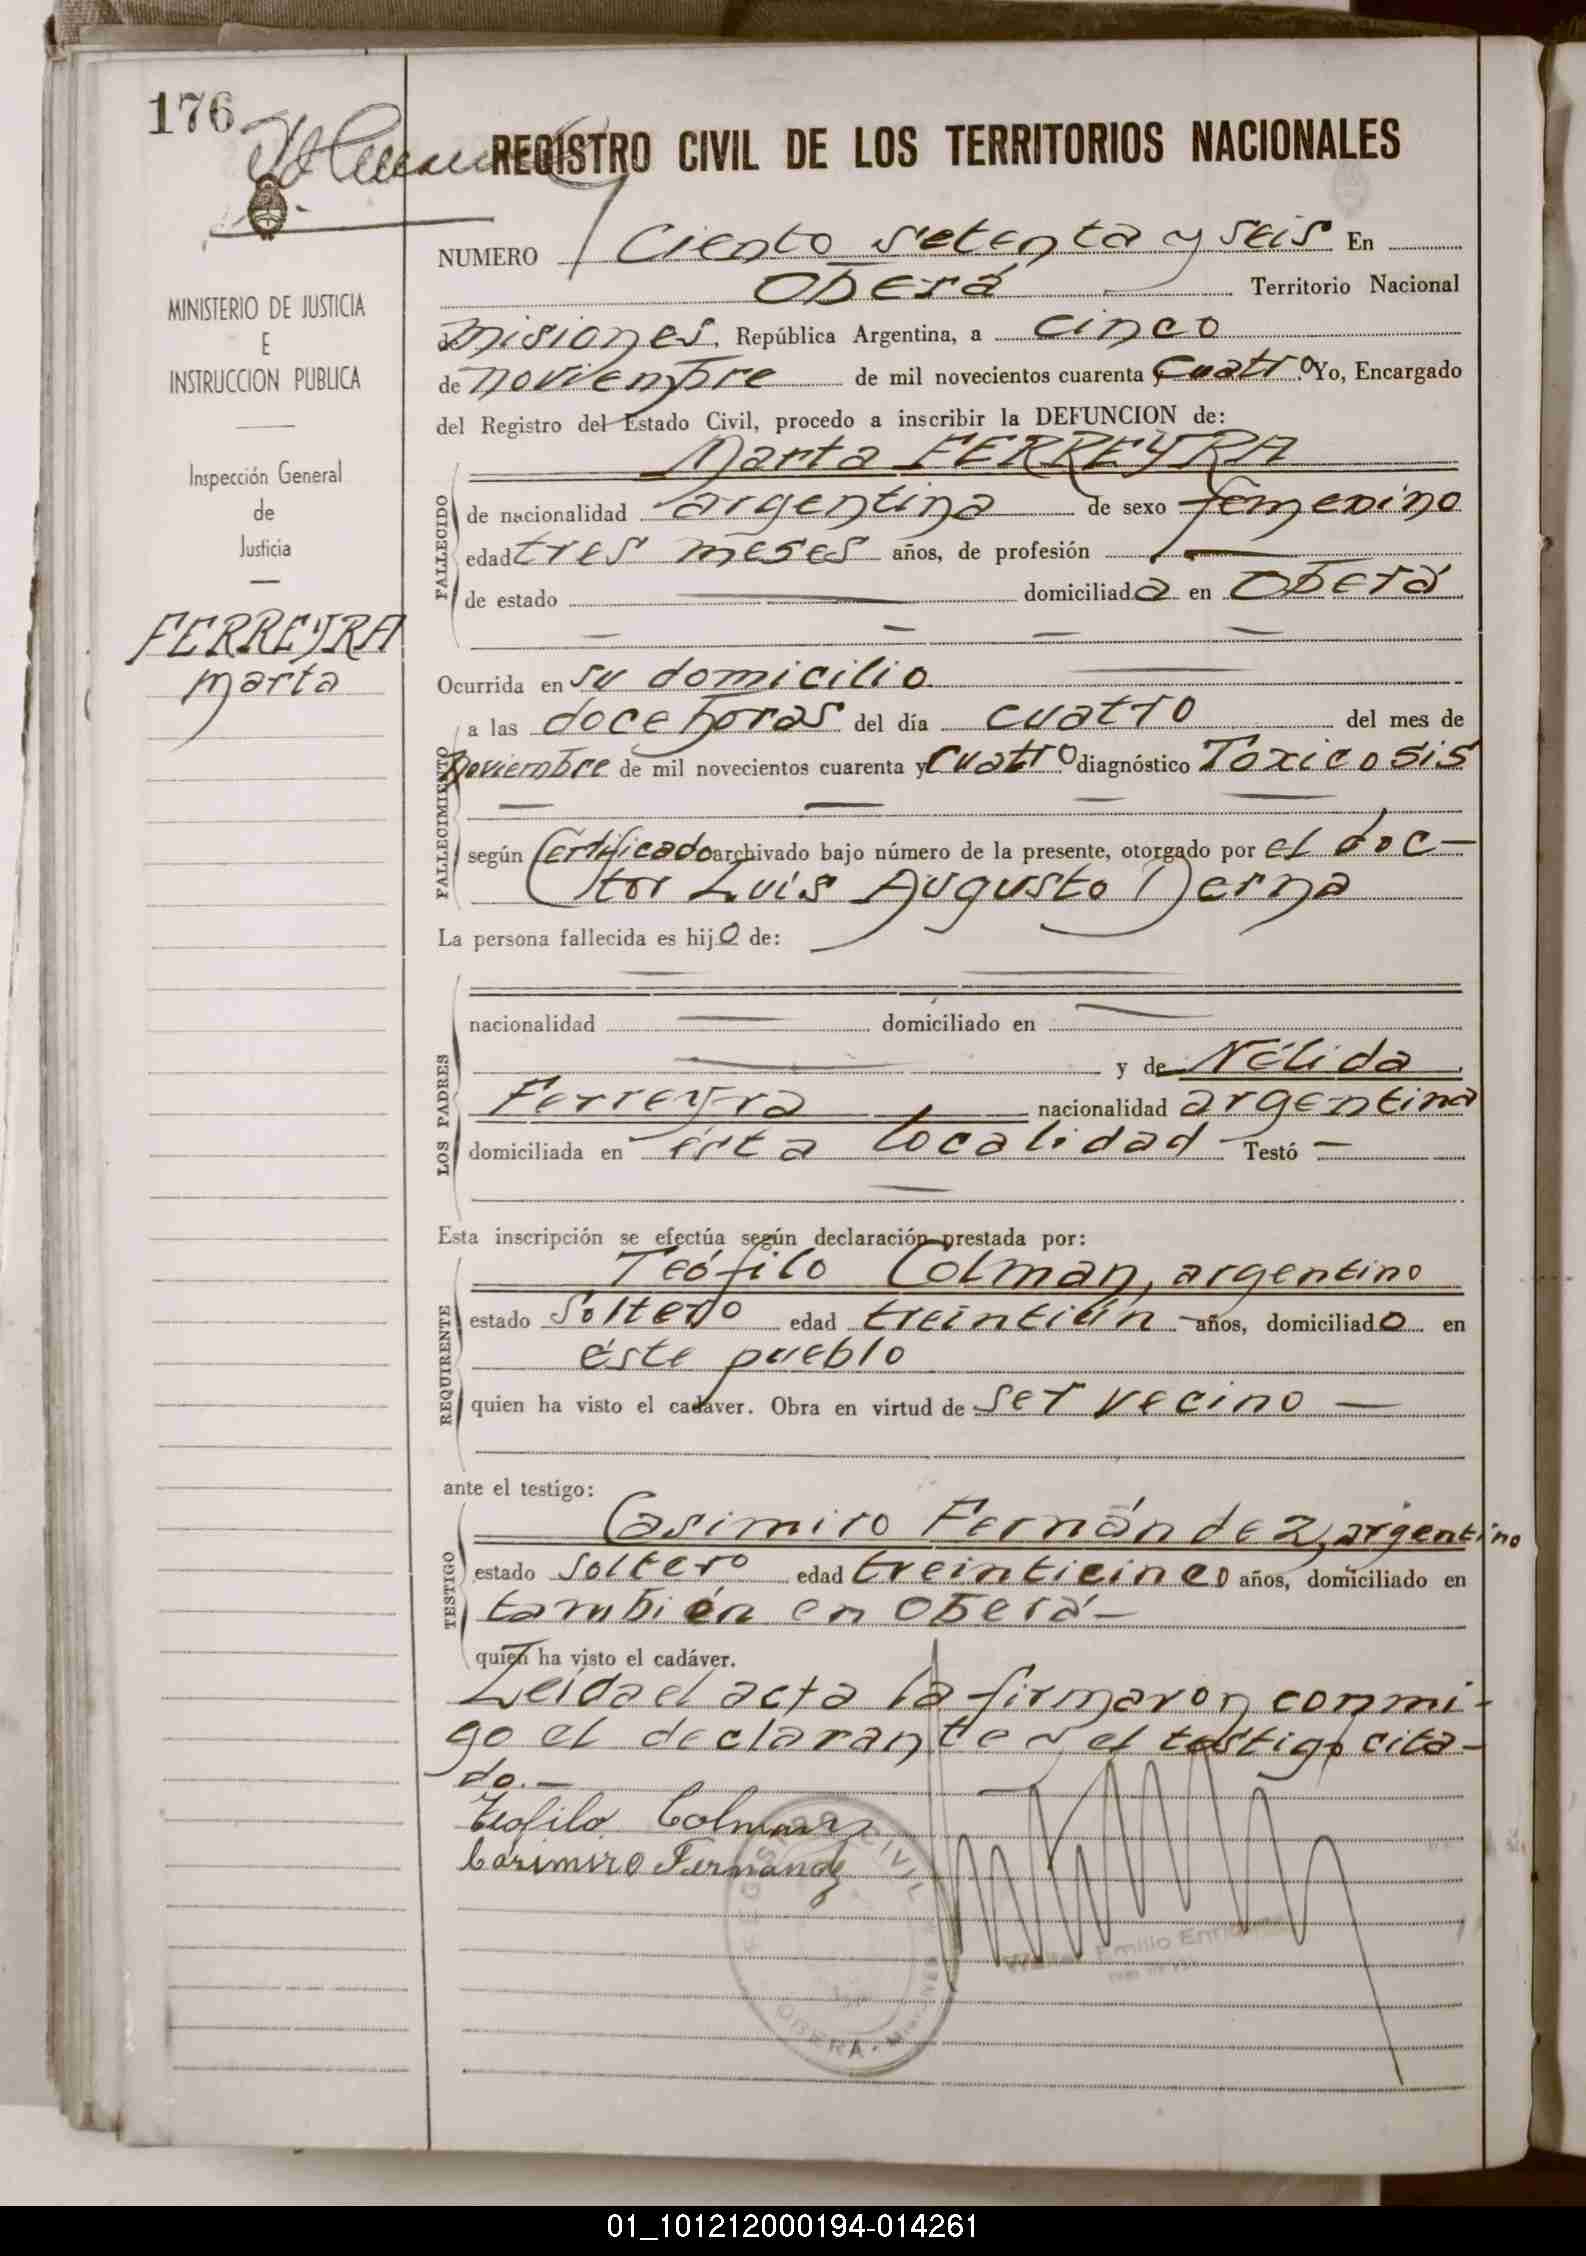 176
REGISTRO CIVIL DE LOS TERRITORIOS NACIONALES
MINISTERIO DE JUSTICIA
E
INSTRUCCION PUBLICA
Inspección General
de
Justicia
FERREYRA
Marta
NUMERO Ciento setenta y seis En
Oberá Territorio Nacional
Misiones, República Argentina, a cinco
de noviembre de mil novecientos cuarenta y cuatro Yo, Encargado
del Registro del Estado Civil, procedo a inscribir la DEFUNCION de:
Marta FERREYRA
FALLECIDO
de nacionalidad argentina de sexo femenino
edad tres meses años, de profesión —
de estado — domiciliada en Oberá
Ocurrida en su domicilio
FALLECIMIENTO
a las doce horas del día cuatro del mes de
Noviembre de mil novecientos cuarenta y cuatro diagnóstico Toxicosis
según Certificado archivado bajo número de la presente, otorgado por el doc-
tor Luis Augusto Derna
La persona fallecida es hijo de:
LOS PADRES
nacionalidad — domiciliado en —
— y de Nélida
Ferreyra nacionalidad argentina
domiciliada en ésta localidad Testó —
Esta inscripción se efectúa según declaración prestada por:
REQUIRENTE
Teófilo Colman, argentino
estado Soltero edad treintiún años, domiciliado en
éste pueblo
quien ha visto el cadáver. Obra en virtud de ser vecino —
ante el testigo:
TESTIGO
Casimiro Fernández, argentino
estado soltero edad treinticinco años, domiciliado en
también en Oberá —
quien ha visto el cadáver.
Leída el acta la firmaron conmi-
go el declarante y el testigo cita-
do. —
Teofilo Colman
Casimiro Fernandez
REGISTRO CIVIL
OBERA - Misiones
Emilio
01_101212000194-014261